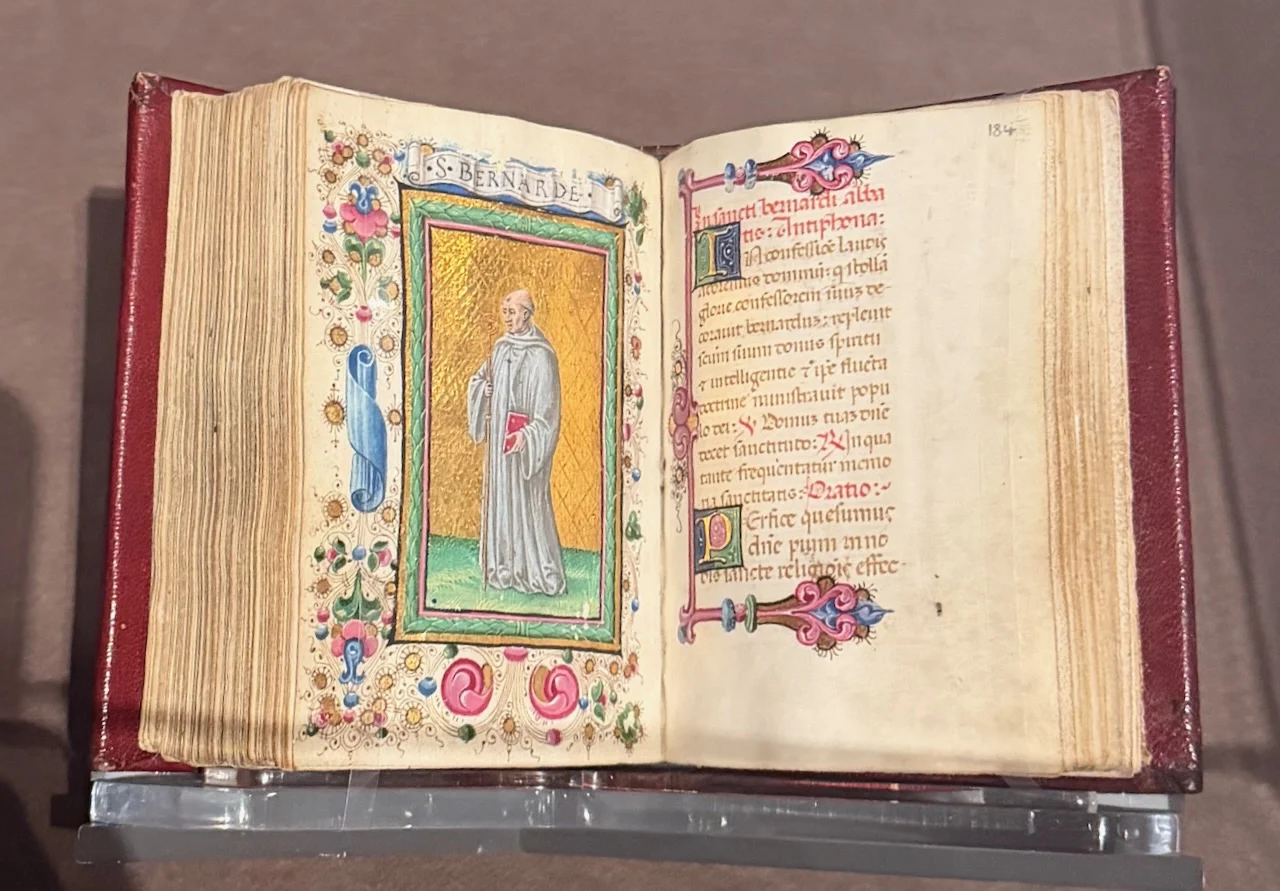 ·S·BERNARDE·
184
In sancti bernardi abba
tis: Antiphona:
IN confessiõe laudis
dominũ: q stolla
glorie confessorem suũ de-
coravit bernardũ: replevit
suum donis spiritu
⁊ intelligentie ⁊ ip̃e fluẽta
doctrine ministravit popu
lo dei: ℣ Domus tuas dñe
decet sanctitudo: ℟ In qua
frequentatur memo
ria sanctitatis: Oratio:~
PErfice quesumus
dñe pium in no
bis sancte religiõis effec-